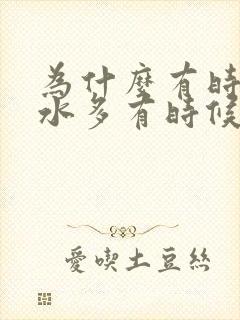 為什麼有時
水多有時候
愛喫土豆絲